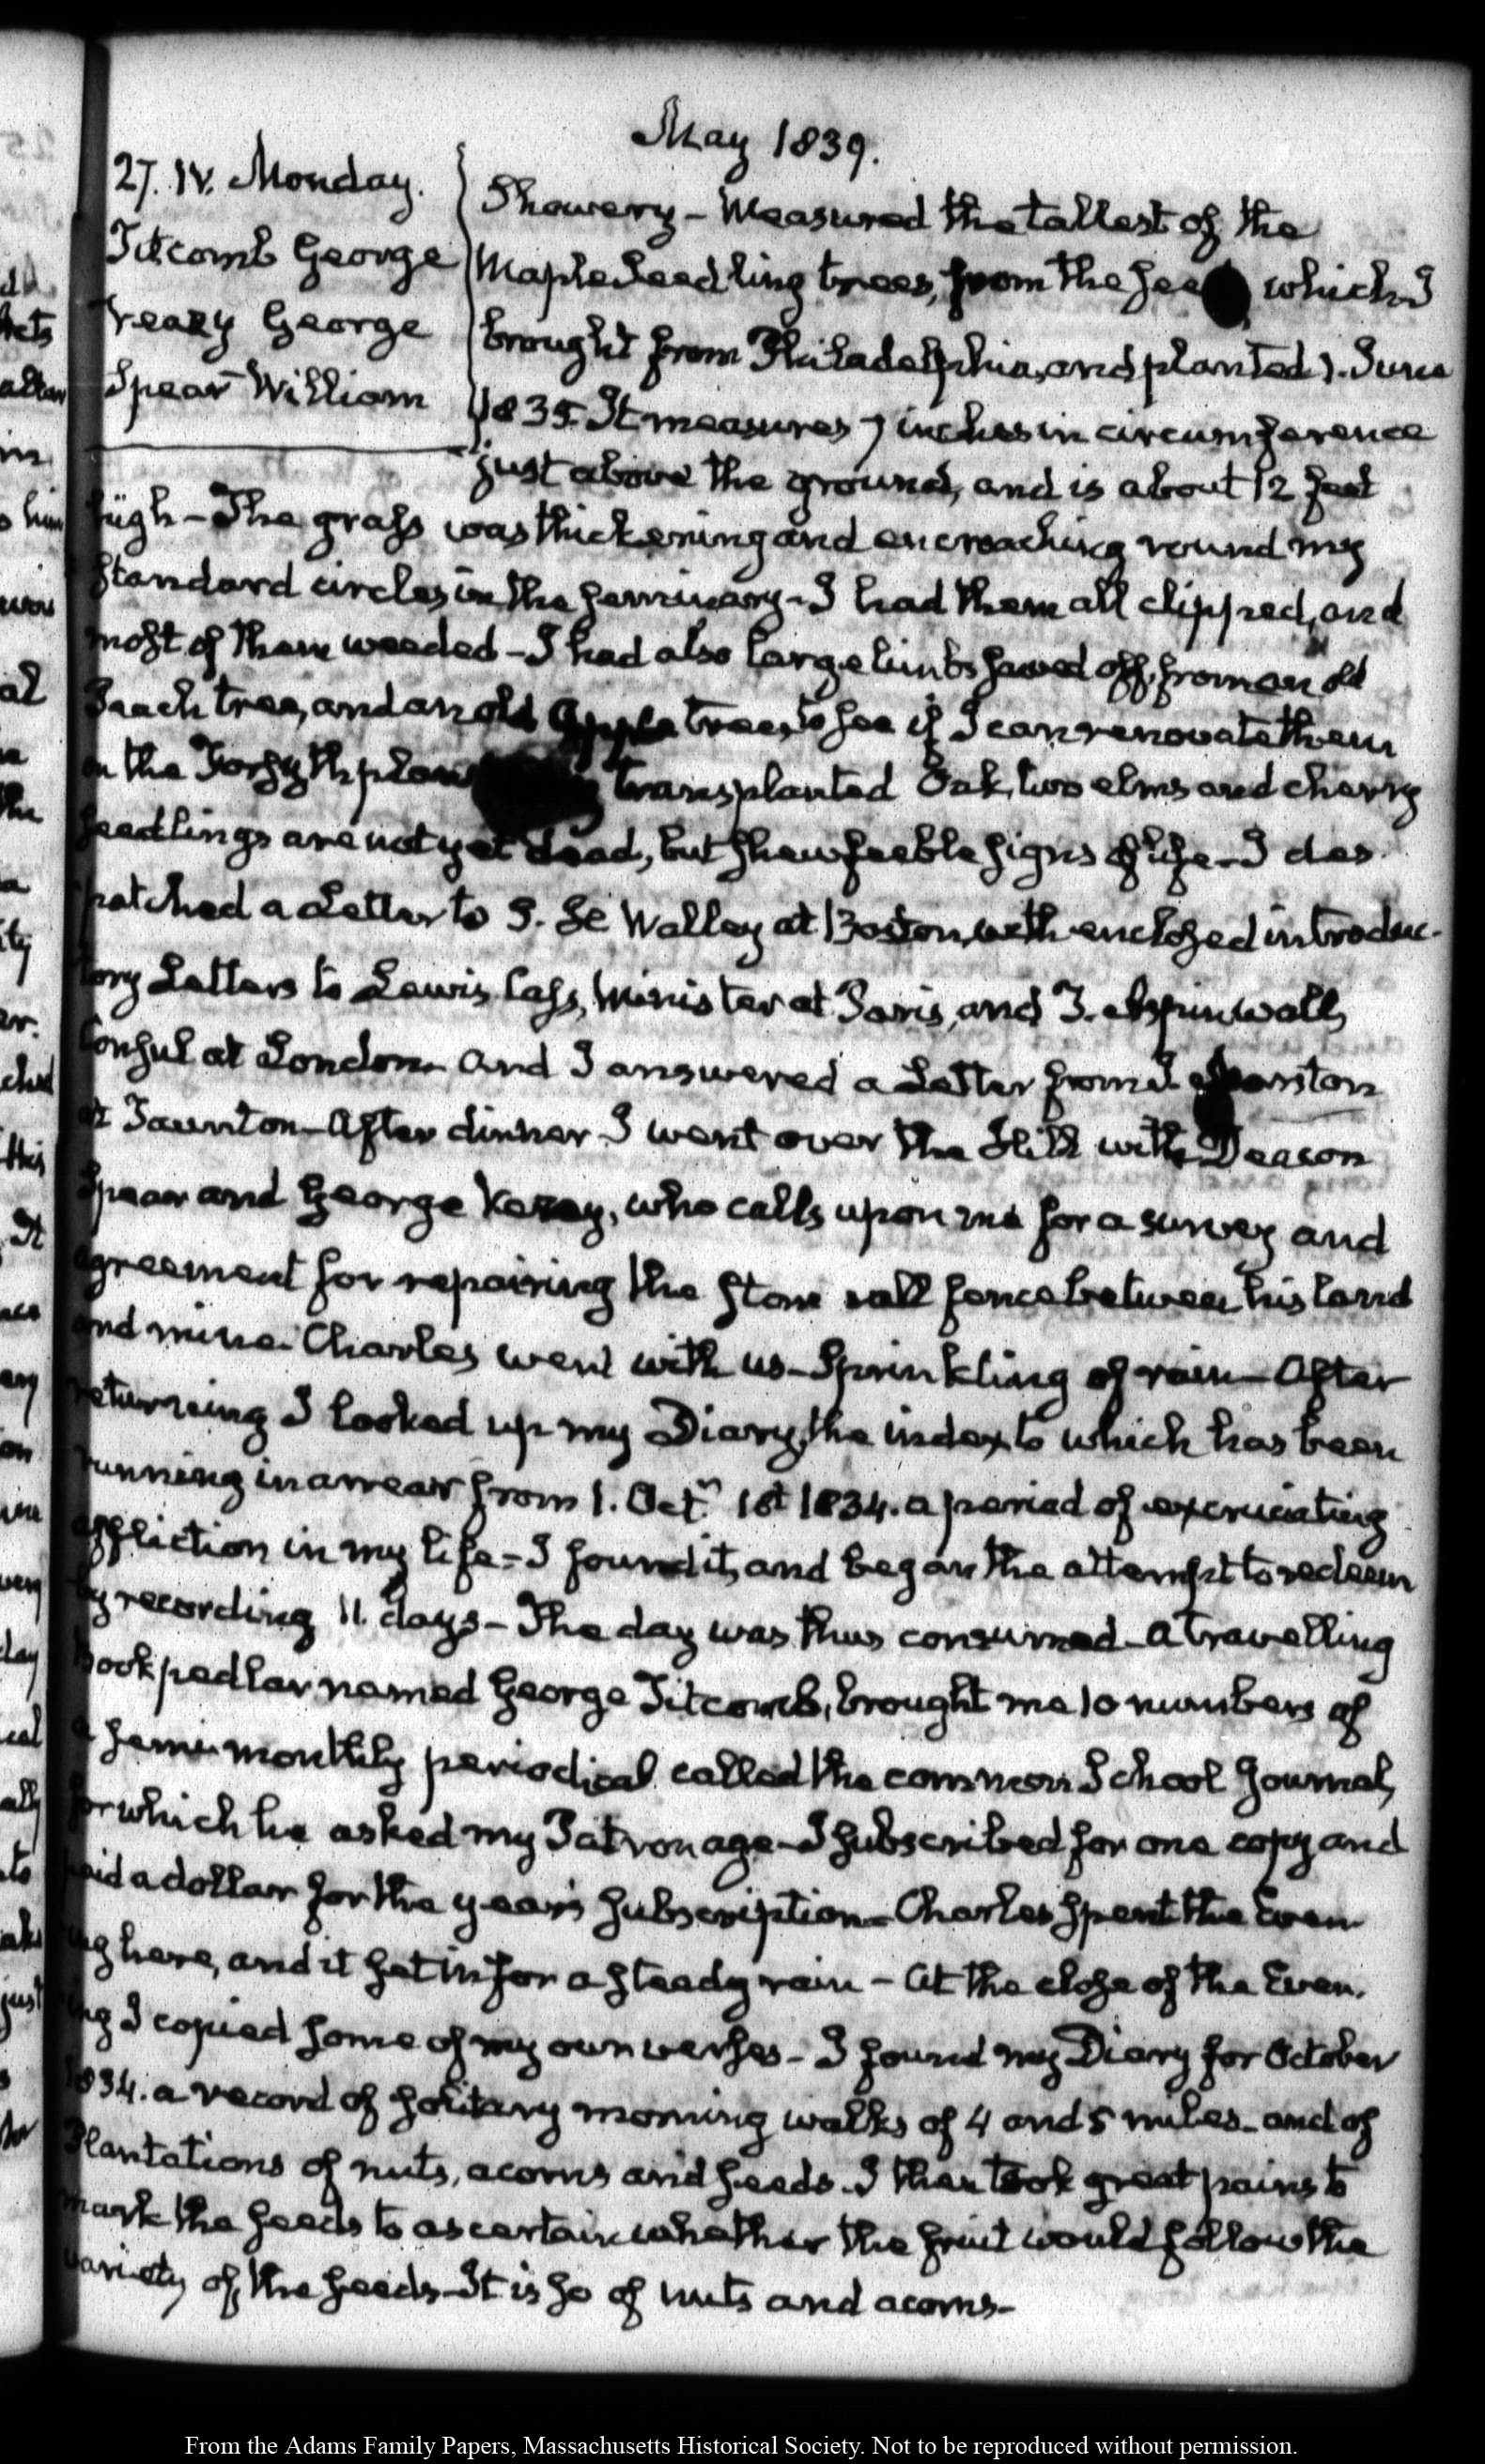 May 1839.
27. IV. Monday.
Titcomb George
Veazy George
Spear William
Showery – Measured the tallest of the
Maple seedling trees, from the which I
brought from Philadelphia, and planted 1. June
1835. It measures 7 inches in circumference
just above the ground, and is about 12 feet
high – The grass was thickening and encroaching round my
standard circles in the seminary – I had them all clipped, and
most of them weeded – I had also large limbs sawed off, from an old
Peach tree, and an old Apple tree, to see if I can renovate them
on the Forsyth plan transplanted Oak, two elms and cherry
seedlings are not yet dead, but shew feeble signs of life – I des-
patched a Letter to S. Walley at Boston, with enclosed introduc-
tory Letters to Lewis Cass, Minister at Paris, and T. Aspinwall,
Consul at London – and I answered a Letter from
at Taunton – After dinner I went over the Hill with Deacon
Spear and George Veazey, who calls upon me for a survey and
agreement for repairing the stone wall fence between his land
and mine. Charles went with us – Sprinkling of rain – After
returning I looked up my Diary, the index to which has been
running in arrear from 1. Octr. 1834. a period of excruciating
affliction in my life – I found it, and began the attempt to redeem
by recording 11. days – The day was thus consumed – A travelling
book pedlar named George Titcomb, brought me 10 numbers of
a semi-monthly periodical called the common School Journal,
for which he asked my Patronage – I subscribed for one copy and
paid a dollar for the year's subscription – Charles spent the Even-
ing here, and it set in for a steady rain – At the close of the Even-
ing I copied some of my own verses – I found my Diary for October
1834. a record of solitary morning walks of 4 and 5 miles – and of
Plantations of nuts, acorns and seeds. I then took great pains to
mark the seeds to ascertain whether the fruit would follow the
variety of the seeds – It is so of nuts and acorns –
From the Adams Family Papers, Massachusetts Historical Society. Not to be reproduced without permission.